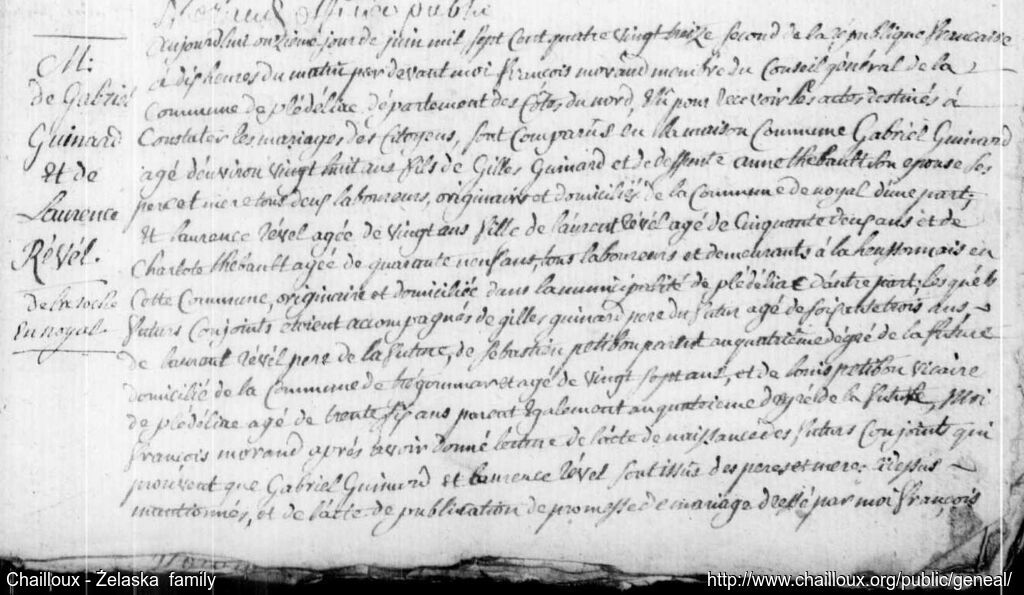 Morand officier public
M:
de Gabriel
Guinard
Et de
Laurence
Révél.
De la roche
En noyal
aujourdhui onzieme jour de juin mil sept Cent quatre vingt treize second de la république francaise
à dix heures du matin par devant moi françois morand membre du Conseil général de la
Commune de plédéliac département des Côtes du nord, élû pour recevoir les actes destinés à
Constater les mariages des Citoyens, sont Comparûs en la maison Commune Gabriel Guinard
agé d'environ vingt huit ans fils de Gilles Guinard et de deffunte anne thebault son epouse ses
pere et mere tous deux laboureurs, originaire et domiciliés de la Commune de noyal d'une part,
Et laurence Révél agée de vingt ans fille de laurent Révél agé de Cinquante deux ans et de
Charlote thebault agée de quarante neuf ans, tous laboureurs et demeurants à la houssomais en
Cette Commune, originaire et domiciliée dans la municipalité de plédéliac d'autre part; les quels
futurs Conjoints etoient accompagnés de gilles guinard pere du futur agé de soixante trois ans,
de laurent Révél pere de la future, de sébastien petibon parent au quatrième dégré de la future
domicilié de la Commune de trégommar et agé de vingt sept ans, et de louis petibon vicaire
de plédéliac agé de trente six ans parent Egalement au quatrieme dégré de la future, Moi
françois morand aprés avoir donné lecture de lácte de naissance des futurs Conjoints qui
prouvent que Gabriel Guinard et laurence Révél sont issus des peres et meres cidessus
mentionnés, et de lácte de publication de promesse de mariage dressé par moi françois
Chailloux - Żelaska family
http://www.chailloux.org/public/geneal/